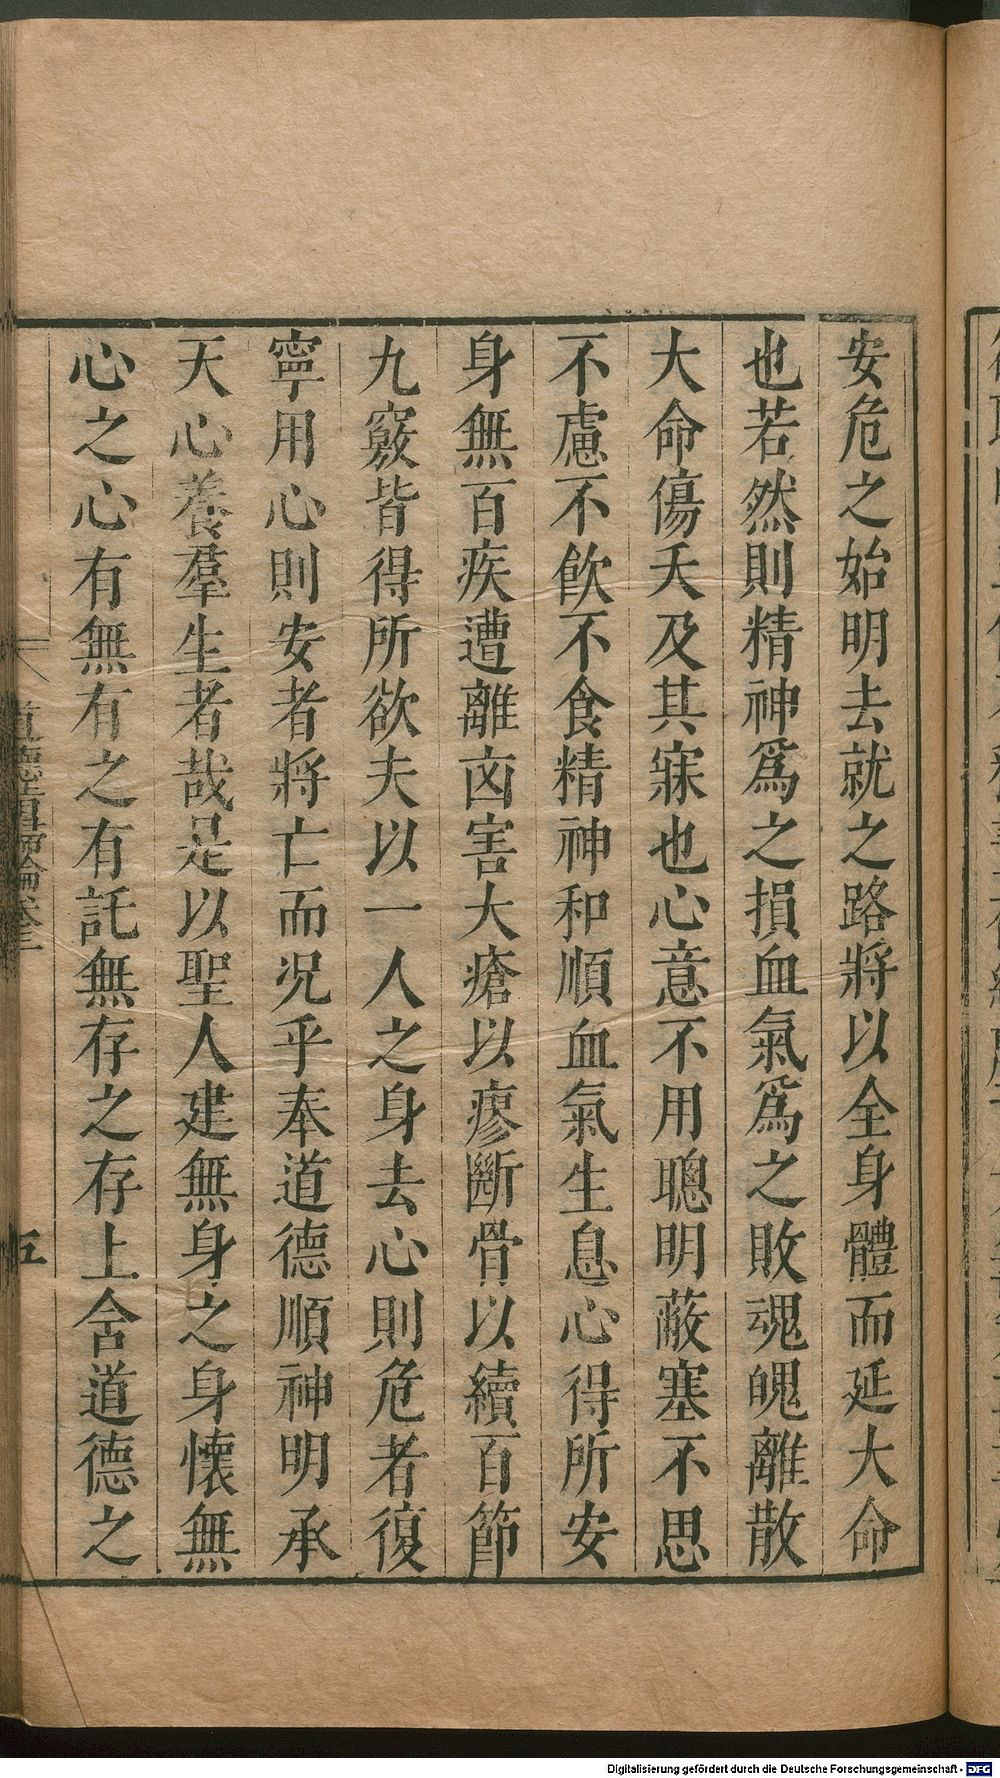 安危之始明去就之路將以全身體而延大命
也若然則精神爲之損血氣爲之敗魂魄離散
大命傷夭及其寐也心意不用聰明蔽塞不思
不慮不飲不食精神和順血氣生息心得所安
身無百疾遭離凶害大瘡以瘳斷骨以續百節
九竅皆得所欲夫以一人之身去心則危者復
寧用心則安者將亡而况乎奉道德順神明承
天心養羣生者哉是以聖人建無身之身懷無
心之心有無有之有託無存之存上含道德之
道德指歸論卷三
五
Digitalisierung gefördert durch die Deutsche Forschungsgemeinschaft - DFG